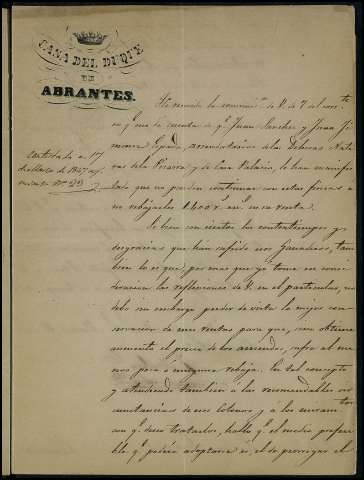 CASA DEL DUQUE
DE
ABRANTES.
Contestada en 17
de Marzo de 1847
He recibido la comunicon de V. de 7 del corrte
en q. me da cuenta de q. Juan Sanchez y Juan Ji
menez Tejado, arrendatarios de las Dehesas
de la Pizarra y de Casa Palacio, le han manifes
tado que no pueden continuar con estas fincas a
no rebajarles 1.600 r. en su renta.
Si bien son ciertos los contratiempos y
desgracias que han sufrido los ganaderos, tam
bien lo es que, por mas que yo tome en consi
deracion las reflecciones de V. en el particular, no
debo sin embargo perder de vista la mejor con
servacion de mis rentas para que, sin obtener
aumento el precio de los arriendos, sufra al me
nos poca ó ninguna rebaja. En tal concepto
y atendiendo tambien a las recomendables cir
cunstancias de esos colonos y a los
con q. seas tratados, hallo q. el medio preferi
ble q. pudiera adoptarse es el de prorrogar el